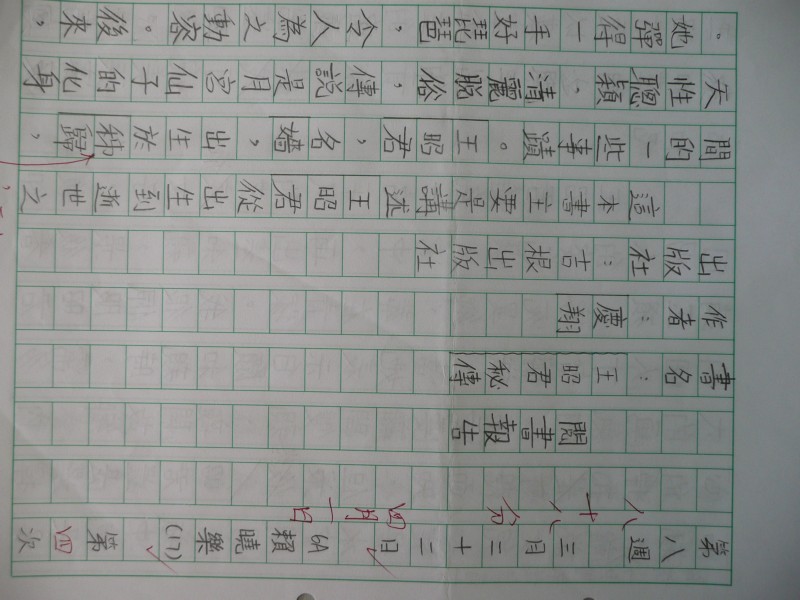 第八週三月二十二日6A賴曉樂(17)第四次
八十八分
四月一日
閱書報告
書名：王昭君秘傳
作者：慶翔
出版社：吉根出版社
這本書主要是講述王昭君從出生到逝世之
間的一些事蹟。王昭君，名嬙，出生於秭歸，
天性聰穎，清麗脫俗，傳說是月宮仙子的化身
。她彈得一手好琵琶，令人為之動容。後來，